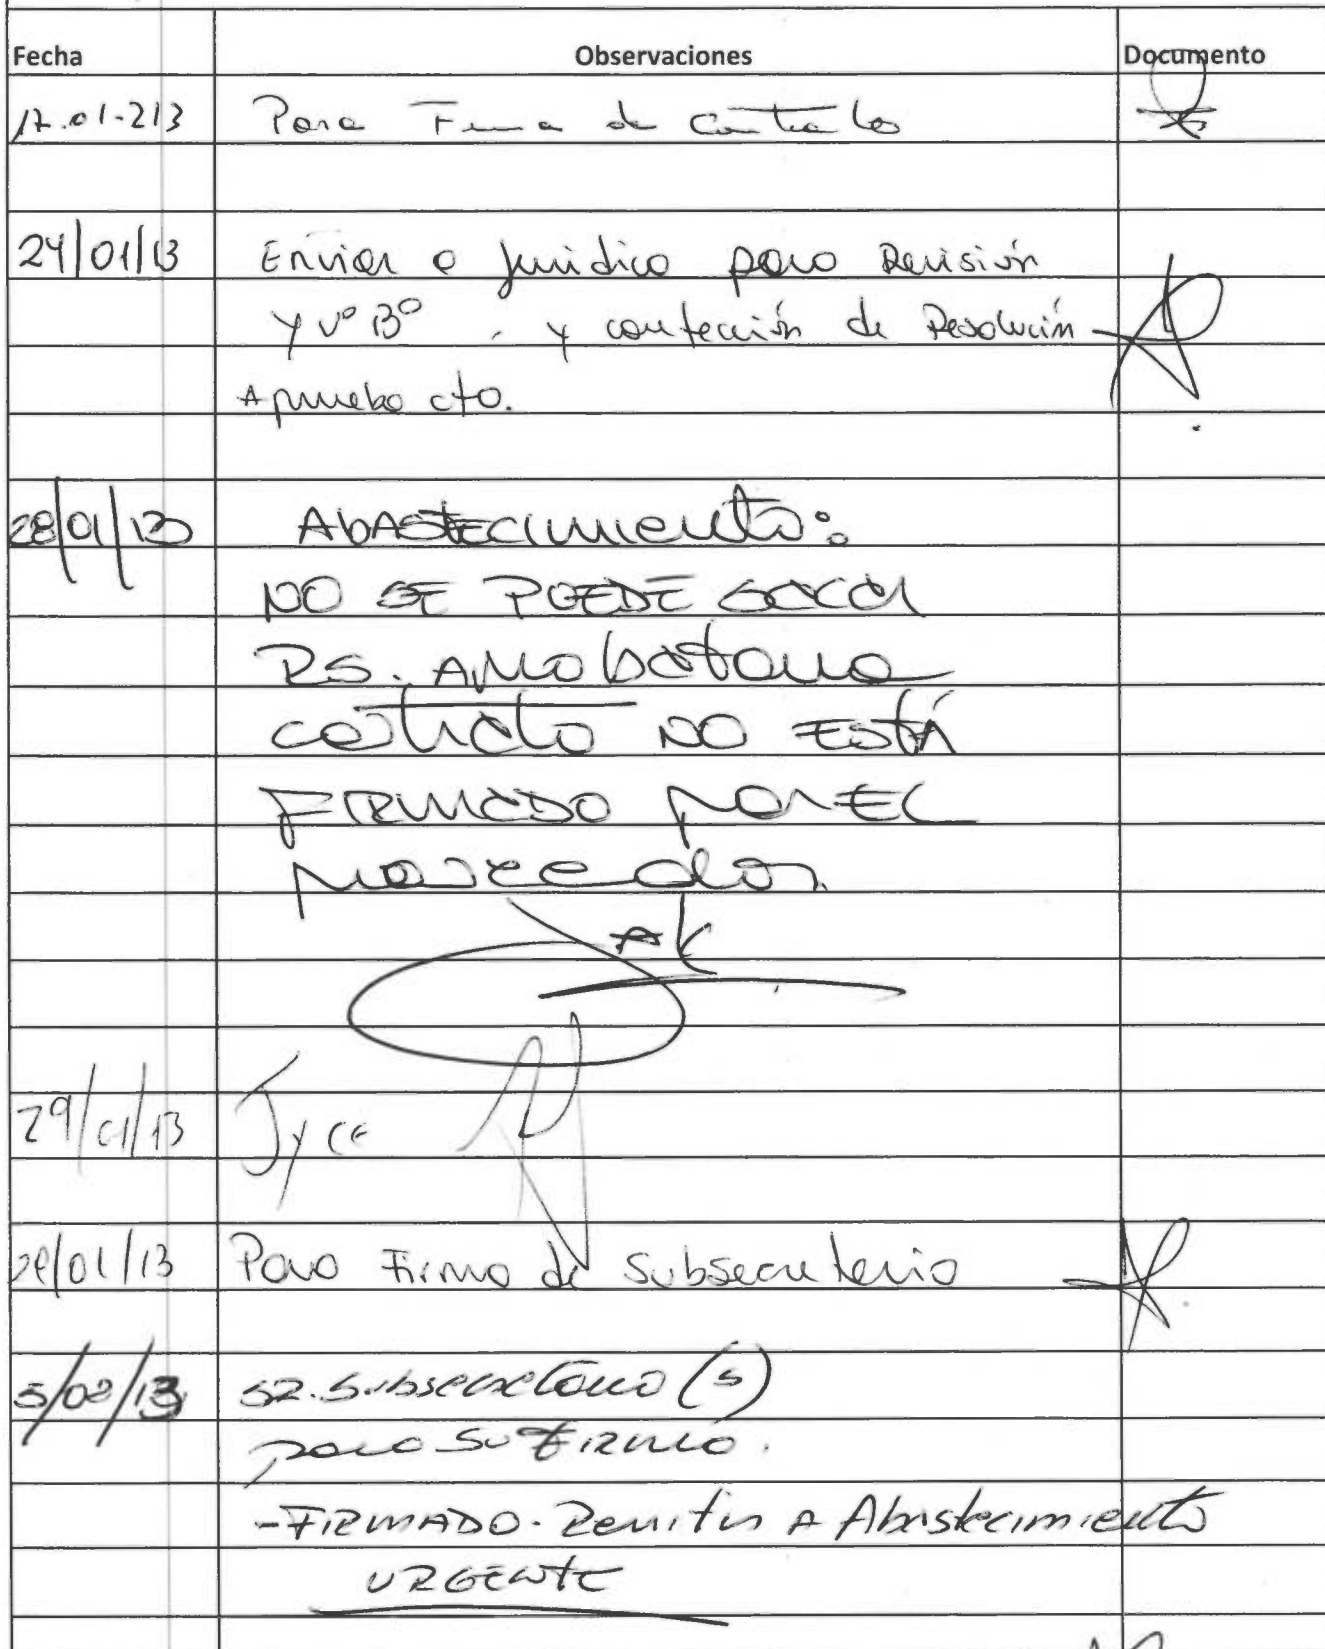 Fecha Observaciones Documento
17.01-213 Para Firma de Contrato
24/01/13 Enviar a Jurídico para Revisión
y Vº Bº . y confección de Resolución
Aprueba cto.
28/01/13 Abastecimiento:
NO SE PUEDE sacar
RS. Aprobatoria
contrato NO ESTÁ
FIRMADO por EL
proveedor.
AK
29/01/13 JyCE
29/01/13 Para Firma de Subsecretario
5/02/13 SR. Subsecretario (s)
para su FIRMA.
-FIRMADO. Remitir A Abastecimiento
URGENTE